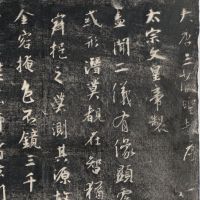 大唐三藏聖教序
太宗文皇帝製
蓋聞二儀有像顯覆
或形潛莫覩在智猶
寂挹之莫測其源故
金容掩色不鏡三千